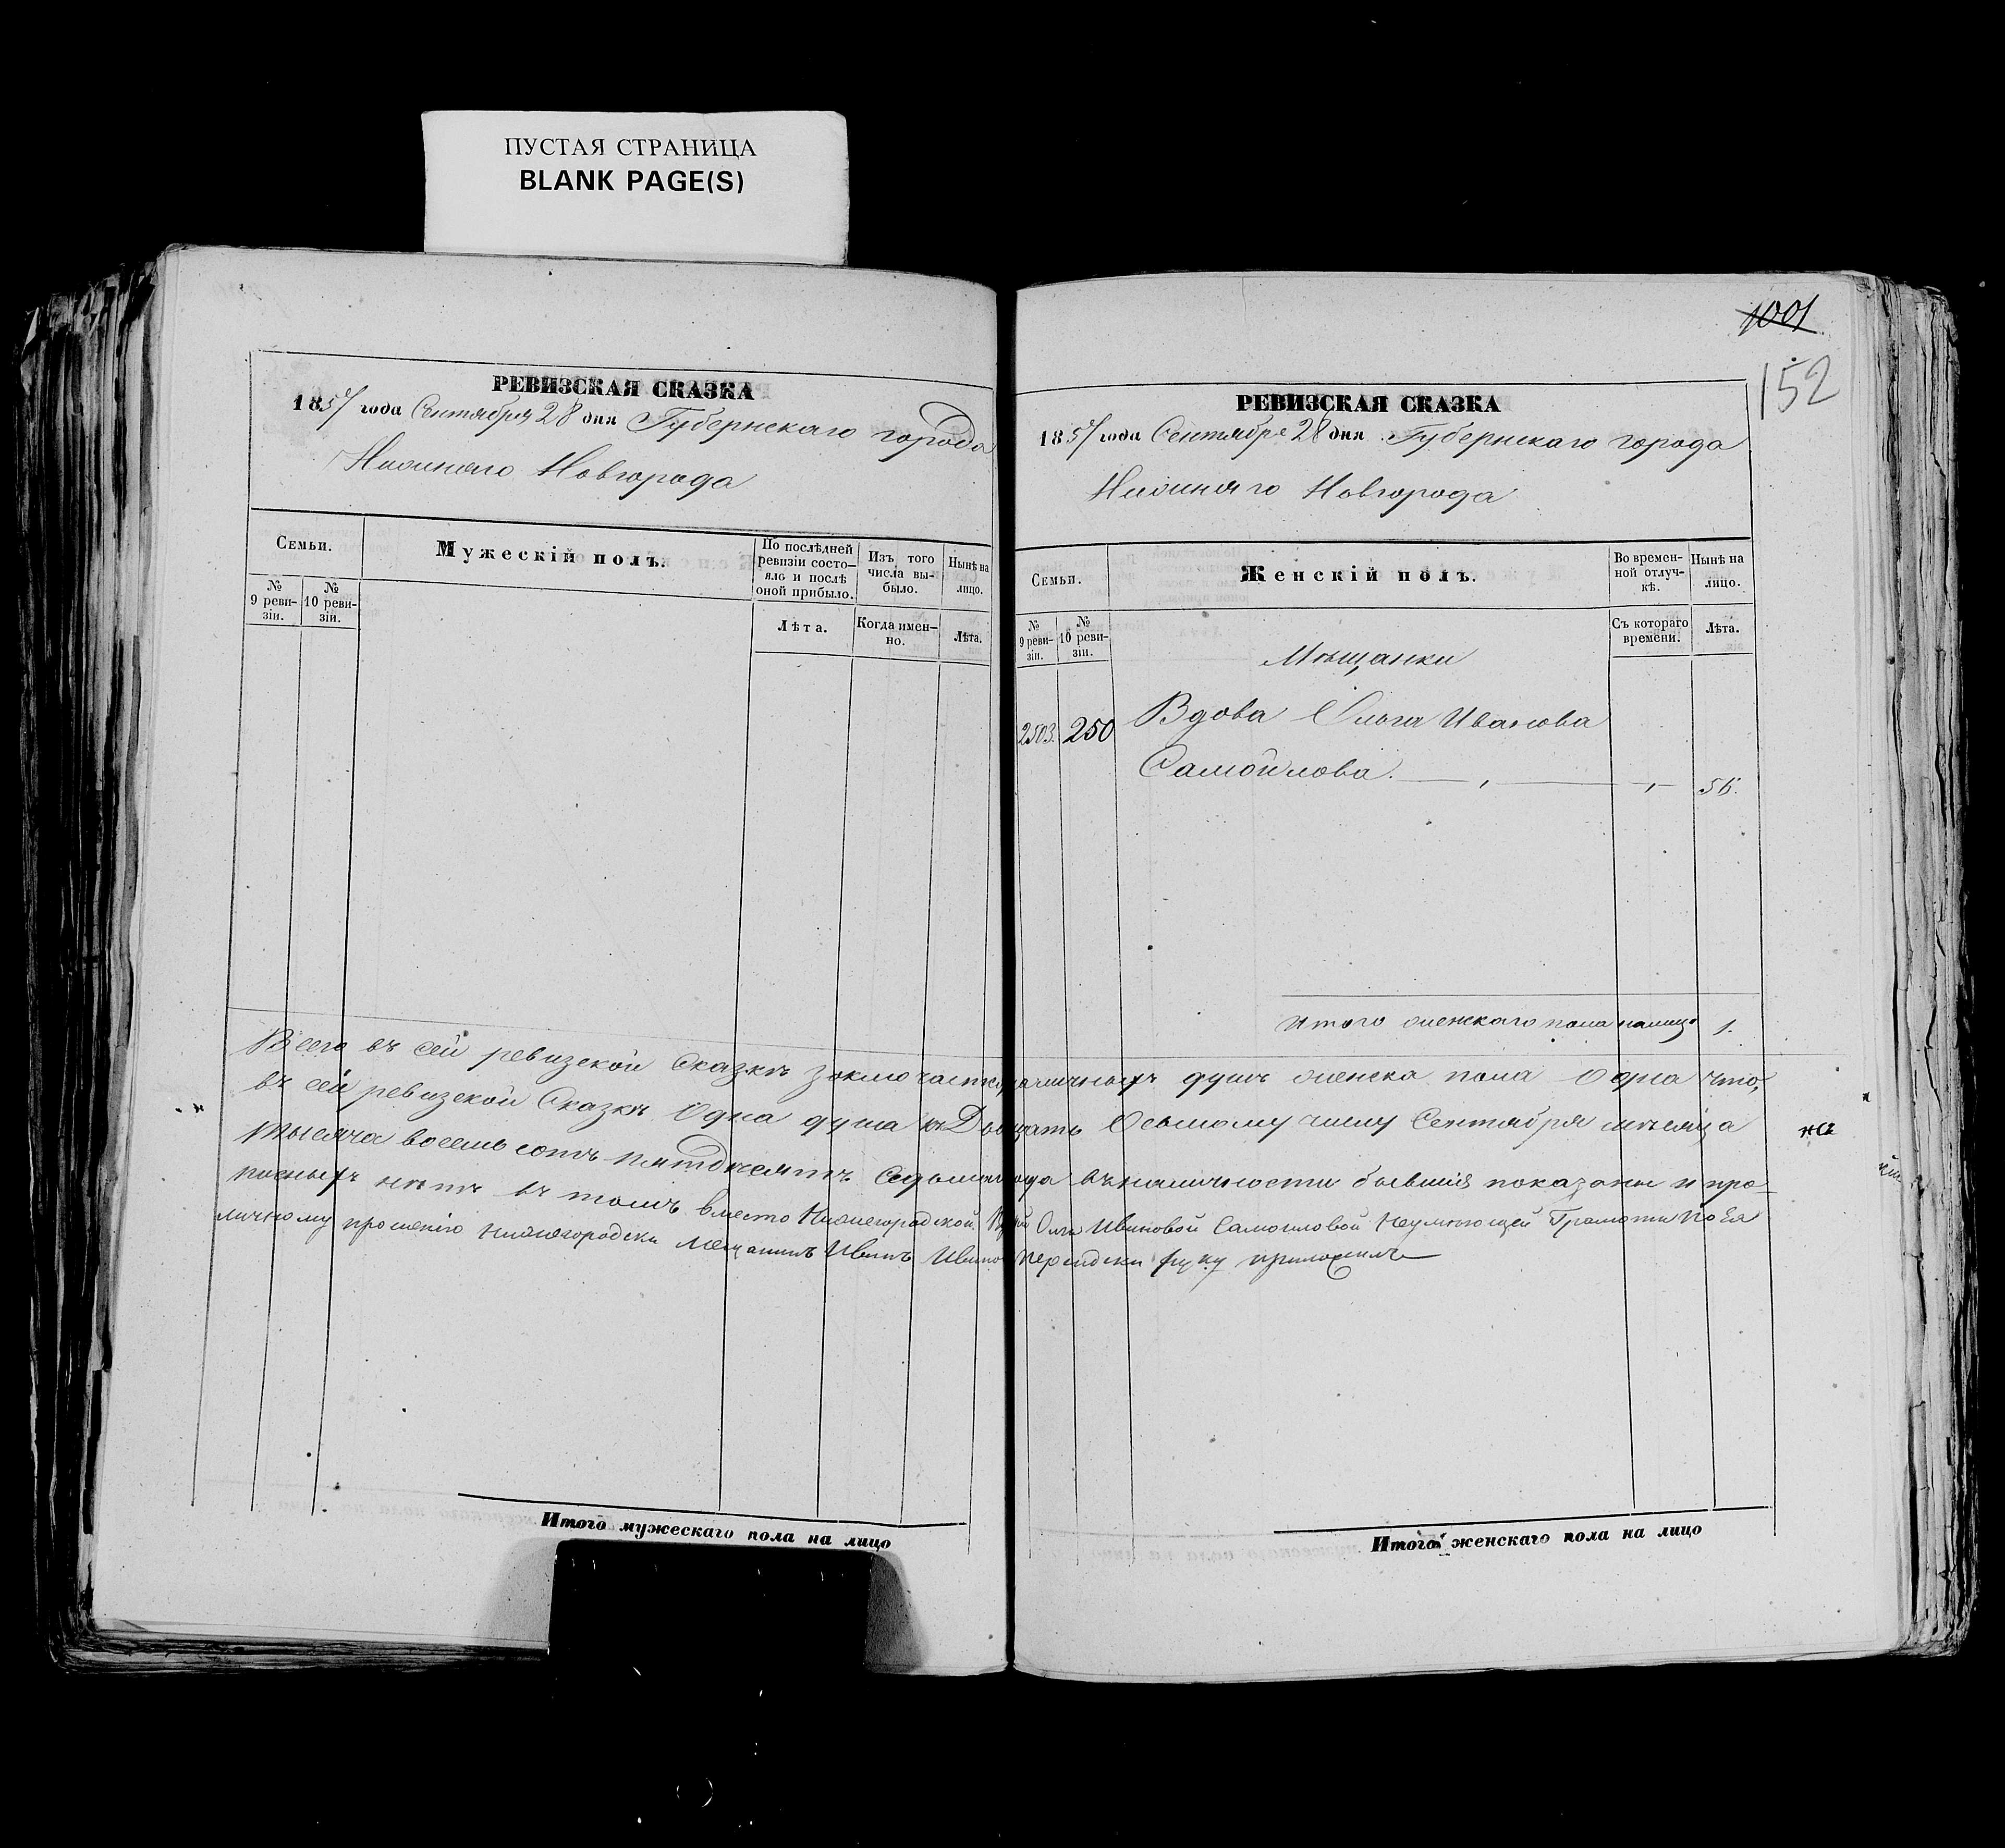 ПУСТАЯ СТРАНИЦА
BLANK PAGE(S)
РЕВИЗСКАЯ СКАЗКА
1857 года Сентября 28 дня Губернскаго города
Нижняго Новгорода
Семьи.
№ 9 ревизіи.
№ 10 ревизіи.
Мужескій полъ.
По послѣдней
ревизіи состо-
яло и послѣ
оной прибыло.
Лѣта.
Изъ того
числа вы-
было.
Когда имен-
но.
Нынѣ на
лицо.
Лѣта.
Итого мужескаго пола на лицо
1001
152
РЕВИЗСКАЯ СКАЗКА
1857 года Сентября 28 дня Губернскаго города
Нижняго Новгорода
Семьи.
№ 9 реви-
зіи.
№ 10 реви-
зіи.
Женскій полъ.
Во времен-
ной отлуч-
кѣ.
Съ котораго
времени.
Нынѣ на
лицо.
Лѣта.
Мѣщанки
2503. 250 Вдова Ольга Иванова
Самойлова.
Итого женскаго пола налицо 1.
Всего въ сей ревизской Сказкѣ заключается наличныхъ душъ женска пола Одна что,
въ сей ревизской Сказкѣ Одна душа къ Двадцать Осьмому числу Сентября мѣсяца
тысяча восемь сотъ пятдесятъ Седьмаго года въ наличности бывшія показаны и про-
писныхъ нѣтъ въ томъ вместо Нижегородской Ольги Ивановой Самойловой Неумеющей Грамоти По Ея
личному прошенію Нижегородски Мещанинъ Иванъ руку приложилъ
Итого женскаго пола на лицо